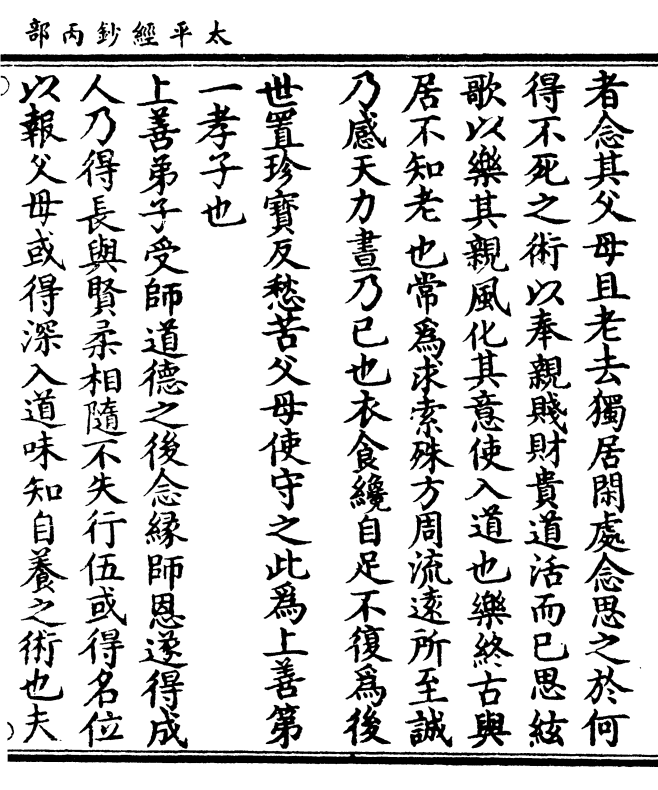 太平經鈔丙部
者念其父母且老去獨居閑處念思之於何
得不死之術以奉親賤財貴道活而已思絃
歌以樂其親風化其意使入道也樂終古與
居不知老也常爲求索殊方周流遠所至誠
乃感天力盡乃已也衣食纔自足不復爲後
世置珍寶反愁苦父母使守之此爲上善第
一孝子也
上善弟子受師道德之後念緣師恩遂得成
人乃得長與賢柔相隨不失行伍或得名位
以報父母或得深入道味知自養之術也夫